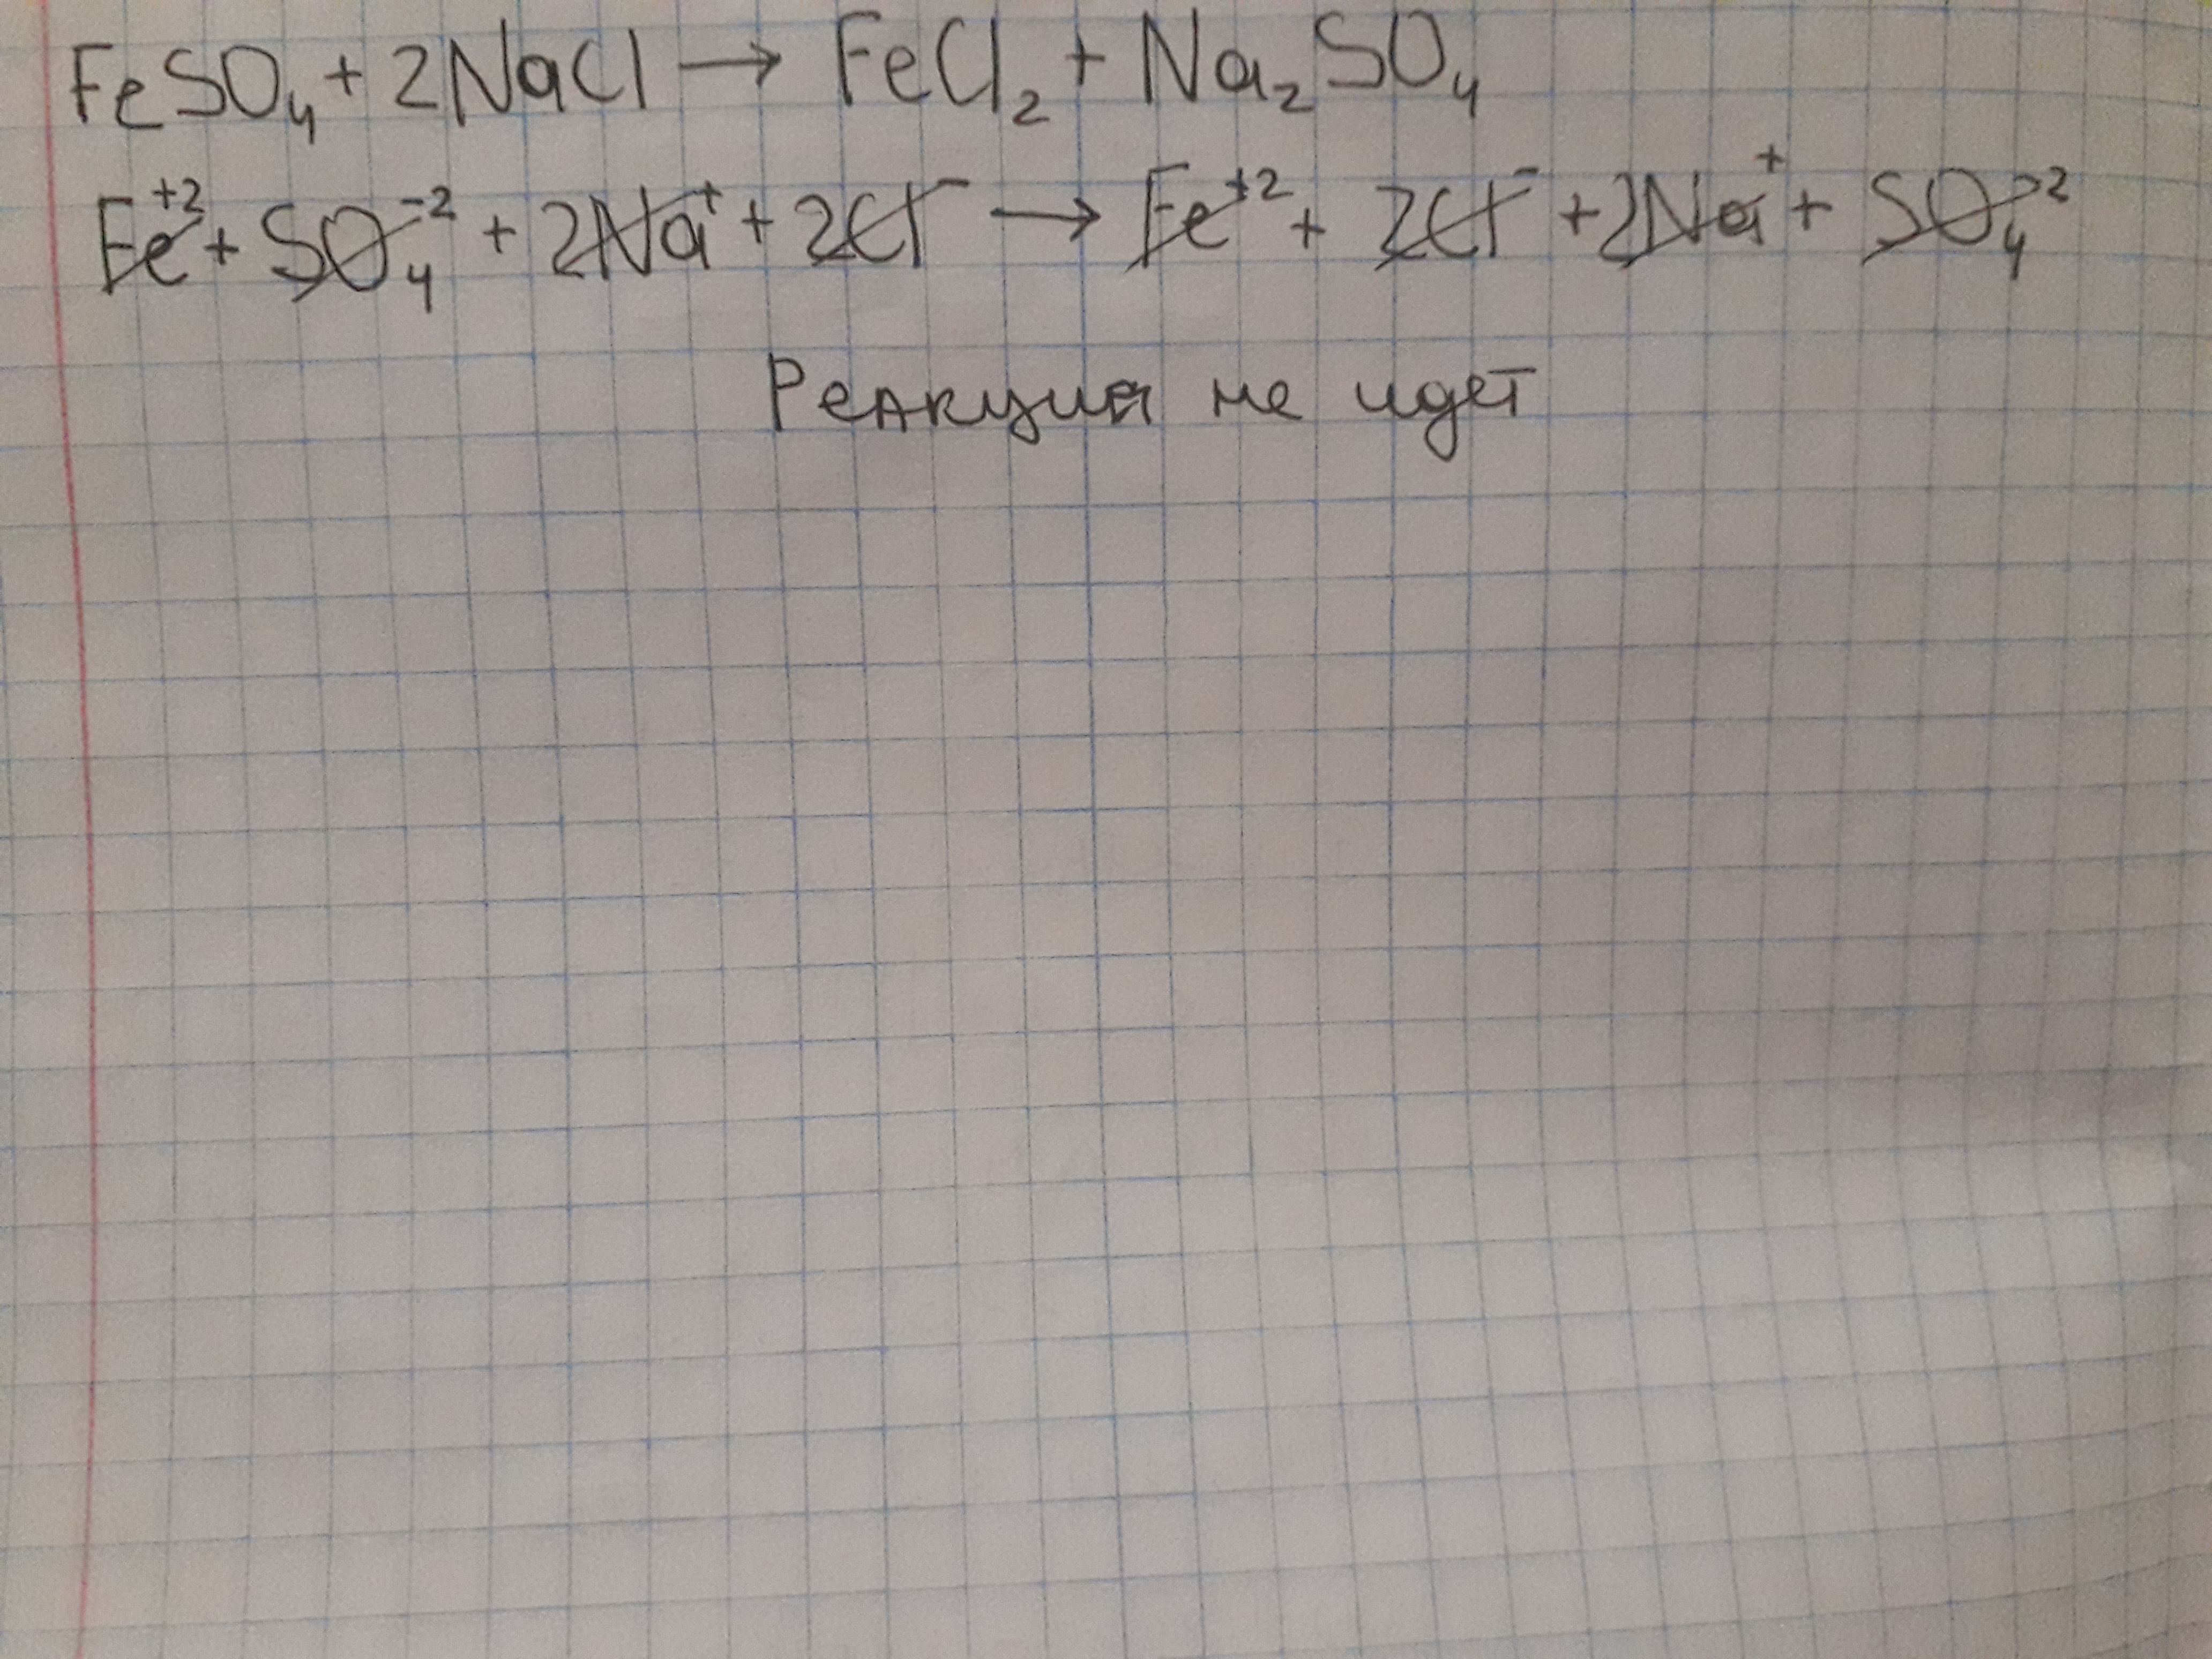 FeSO₄ + 2NaCl → FeCl₂ + Na₂SO₄
Fe⁺² + SO₄⁻² + 2Na⁺ + 2Cl⁻ → Fe⁺² + 2Cl⁻ + 2Na⁺ + SO₄⁻²
Реакция не идет